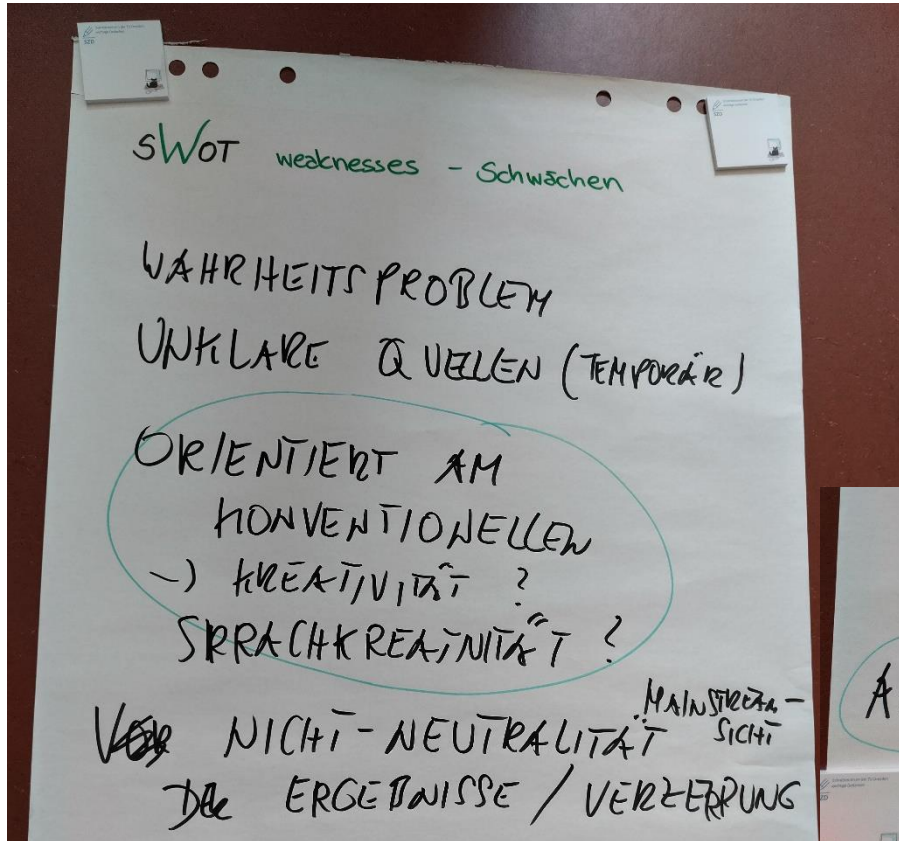 sWOT weaknesses - Schwächen
WAHRHEITSPROBLEM
UNKLARE QUELLEN (TEMPORÄR)
ORIENTIERT AM
KONVENTIONELLEN
-) KREATIVITÄT ?
SPRACHKREATIVITÄT ?
MAINSTREAM-
SICHT
NICHT-NEUTRALITÄT
DER ERGEBNISSE / VERZERRUNG
A